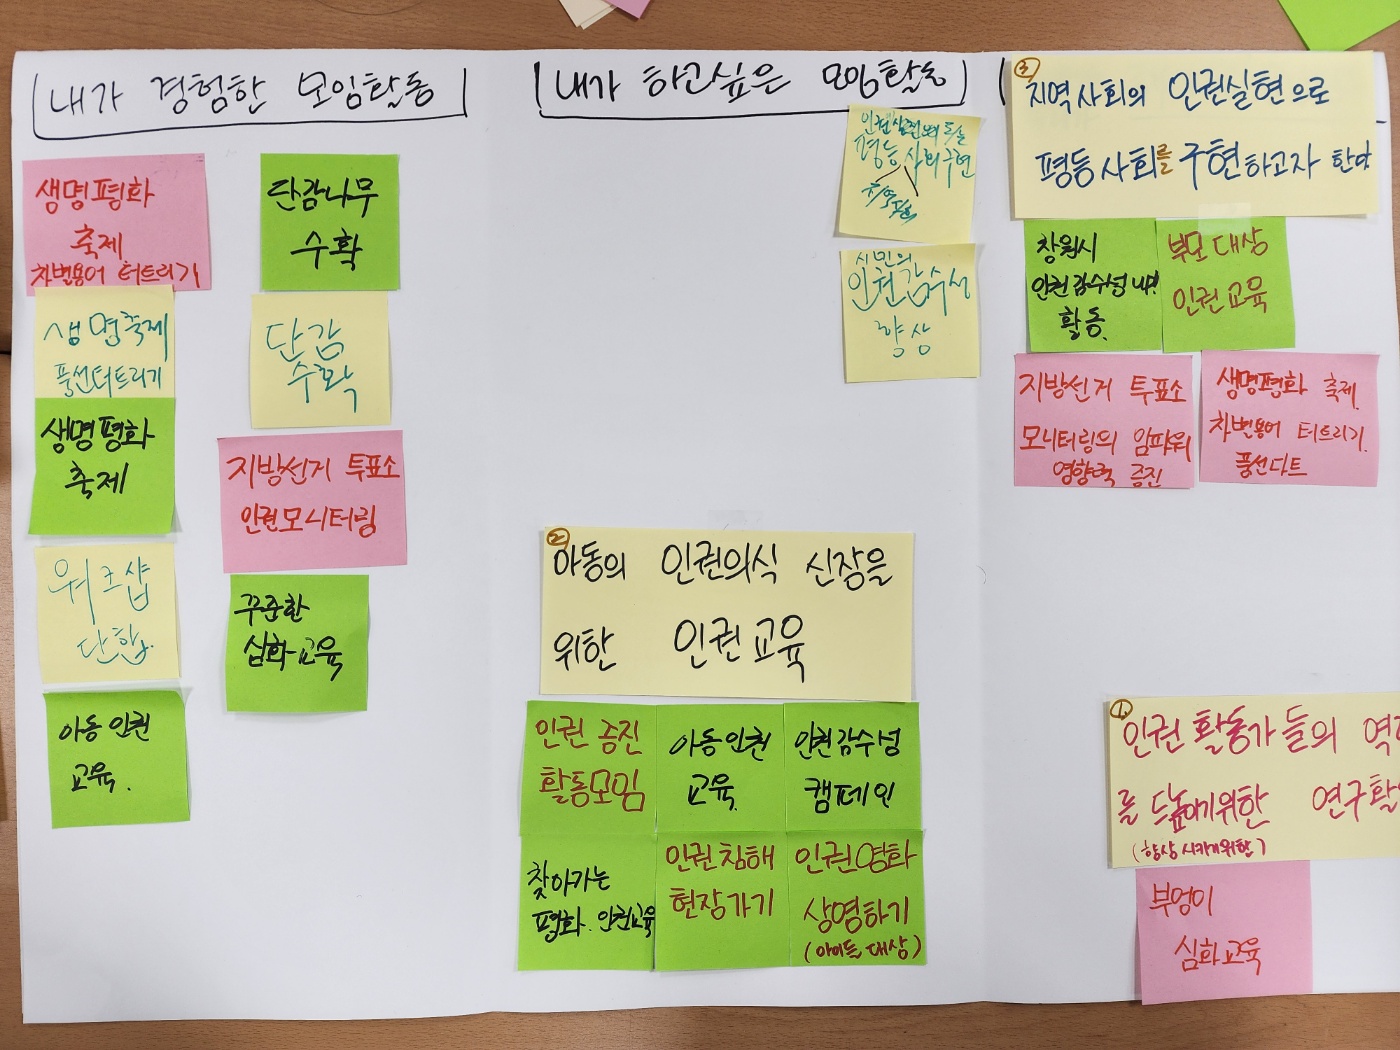 내가 경험한 모임활동
생명평화
축제
차별용어 터트리기
생명축제
풍선터트리기
생명평화
축제
워크샵
단합.
아동 인권
교육.
단감나무
수확
단감
수확
지방선거 투표소
인권모니터링
꾸준한
심화교육
내가 하고싶은 모임활동
평등 사회구현
시민의
인권감수성
향상
②
아동의 인권의식 신장을
위한 인권교육
인권 증진
활동모임
아동인권
교육.
인권감수성
캠페인
찾아가는
평화. 인권교육
인권침해
현장가기
인권영화
상영하기
(아이들 대상)
③
지역사회의 인권실현으로
평등사회를 구현하고자 한다
창원시
인권감수성
활동.
부모 대상
인권교육
지방선거 투표소
모니터링의 임파워
영향력 증진
생명평화 축제.
차별용어 터트리기.
풍선다트
①
인권 활동가 들의
를 드높이기위한
(향상 시키기위한)
부엉이
심화교육